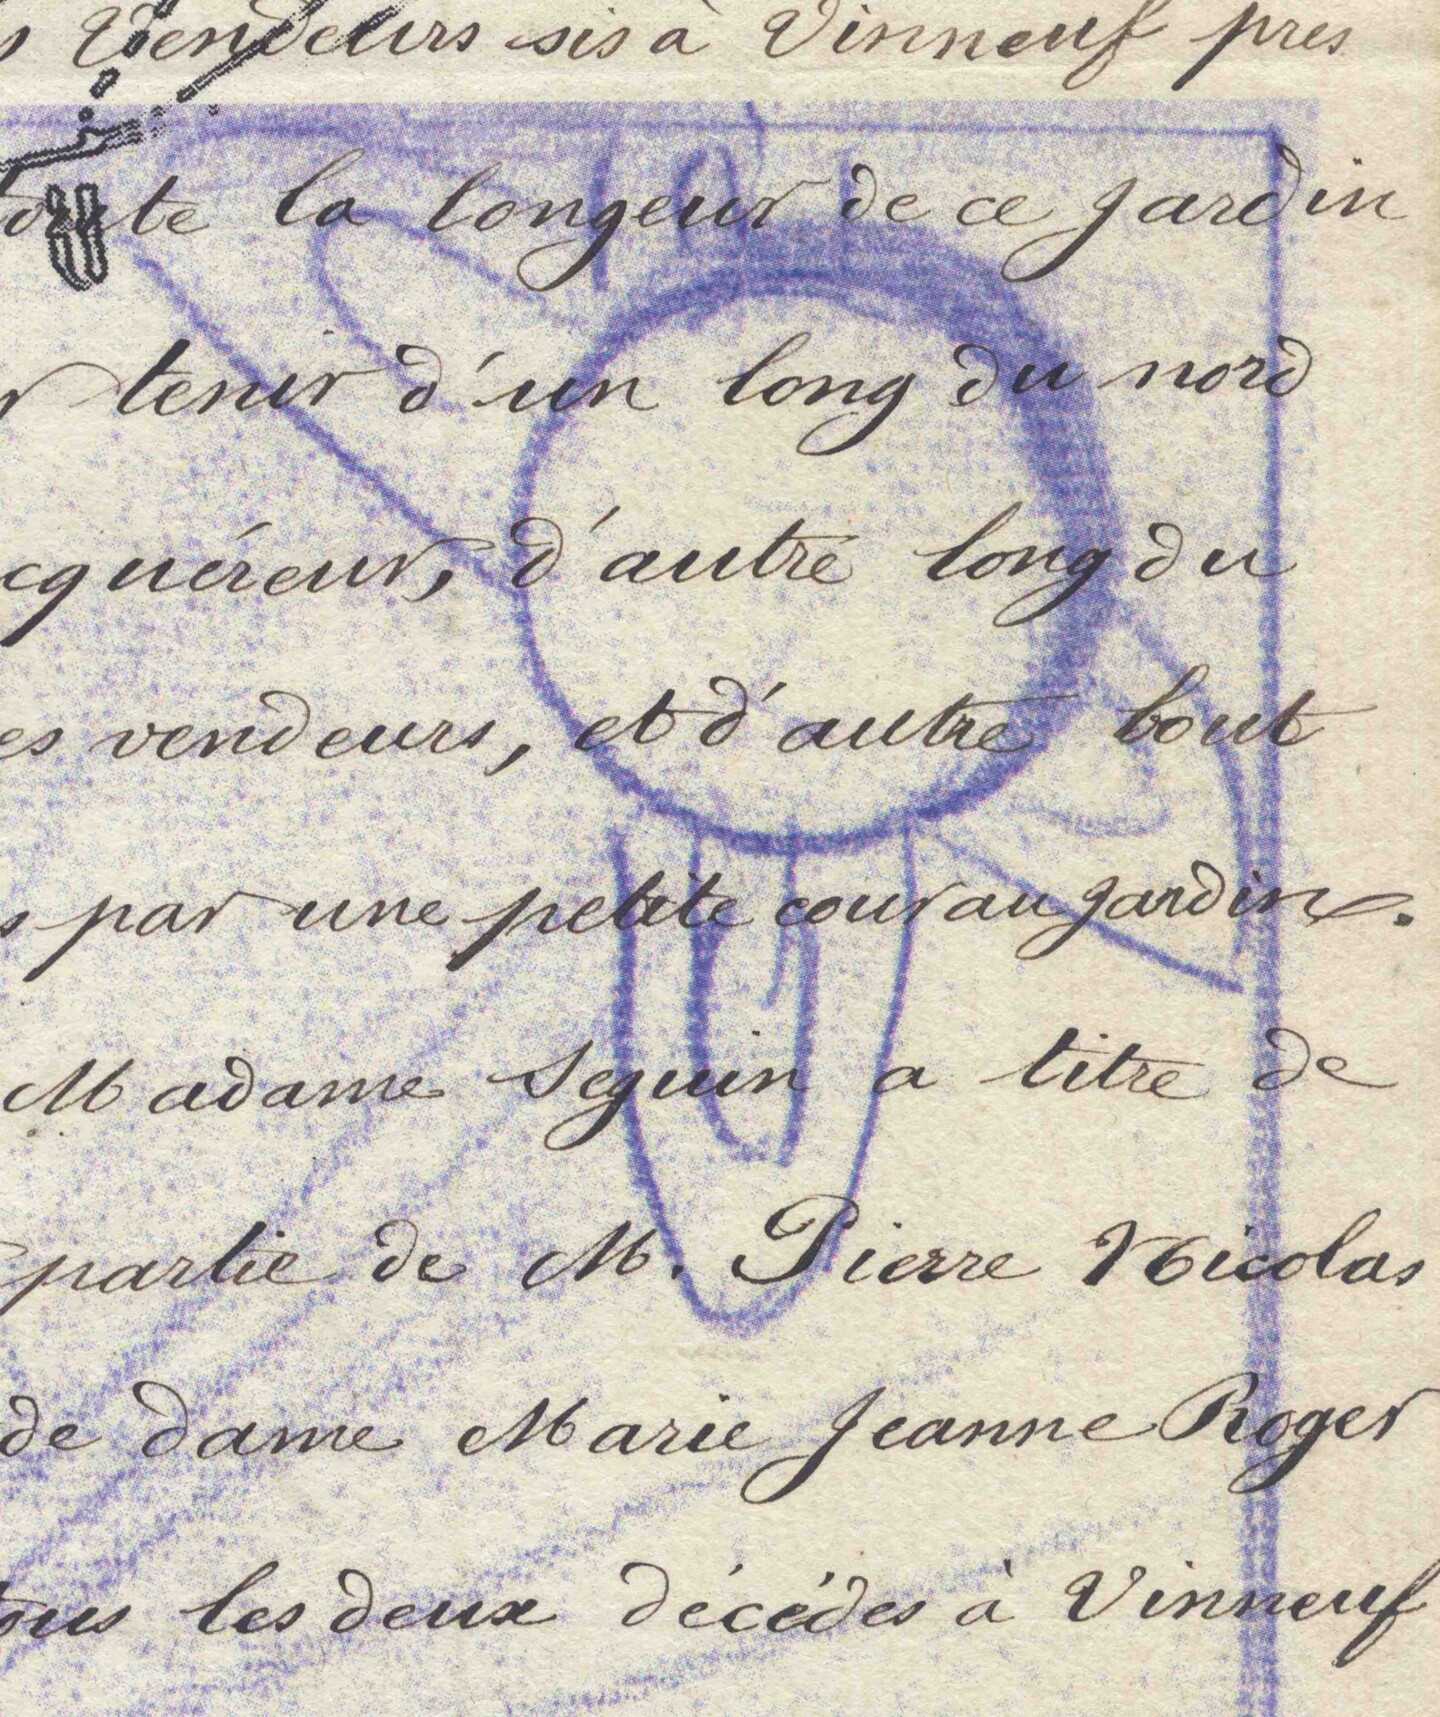 s Vendeurs sis à Vinneuf pres
toute la longeur de ce jardin
tenir d'un long du nord
cquéreur, d'autre long du
es vendeurs, et d'autre bout
s par une petite cour au jardin.
Madame Seguin a titre de
partie de M. Pierre Nicolas
de dame Marie Jeanne Roger
tous les deux décédés à Vinneuf